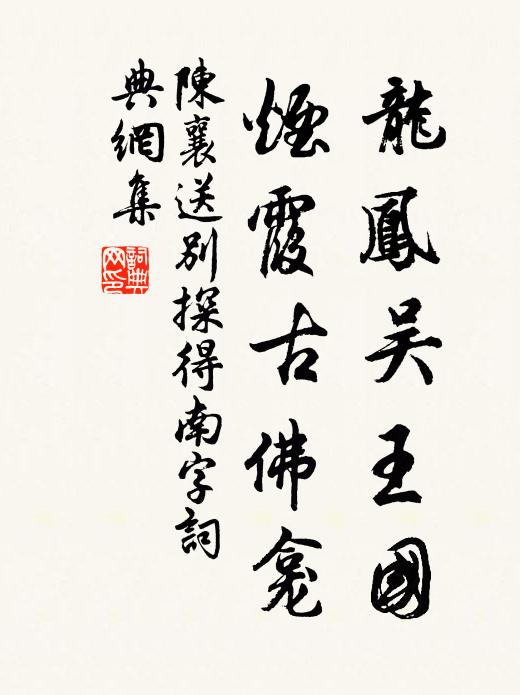 龍鳳吴王國
煙霞古佛龕
陳襄送別探得南字詞
典網集
詞典網印